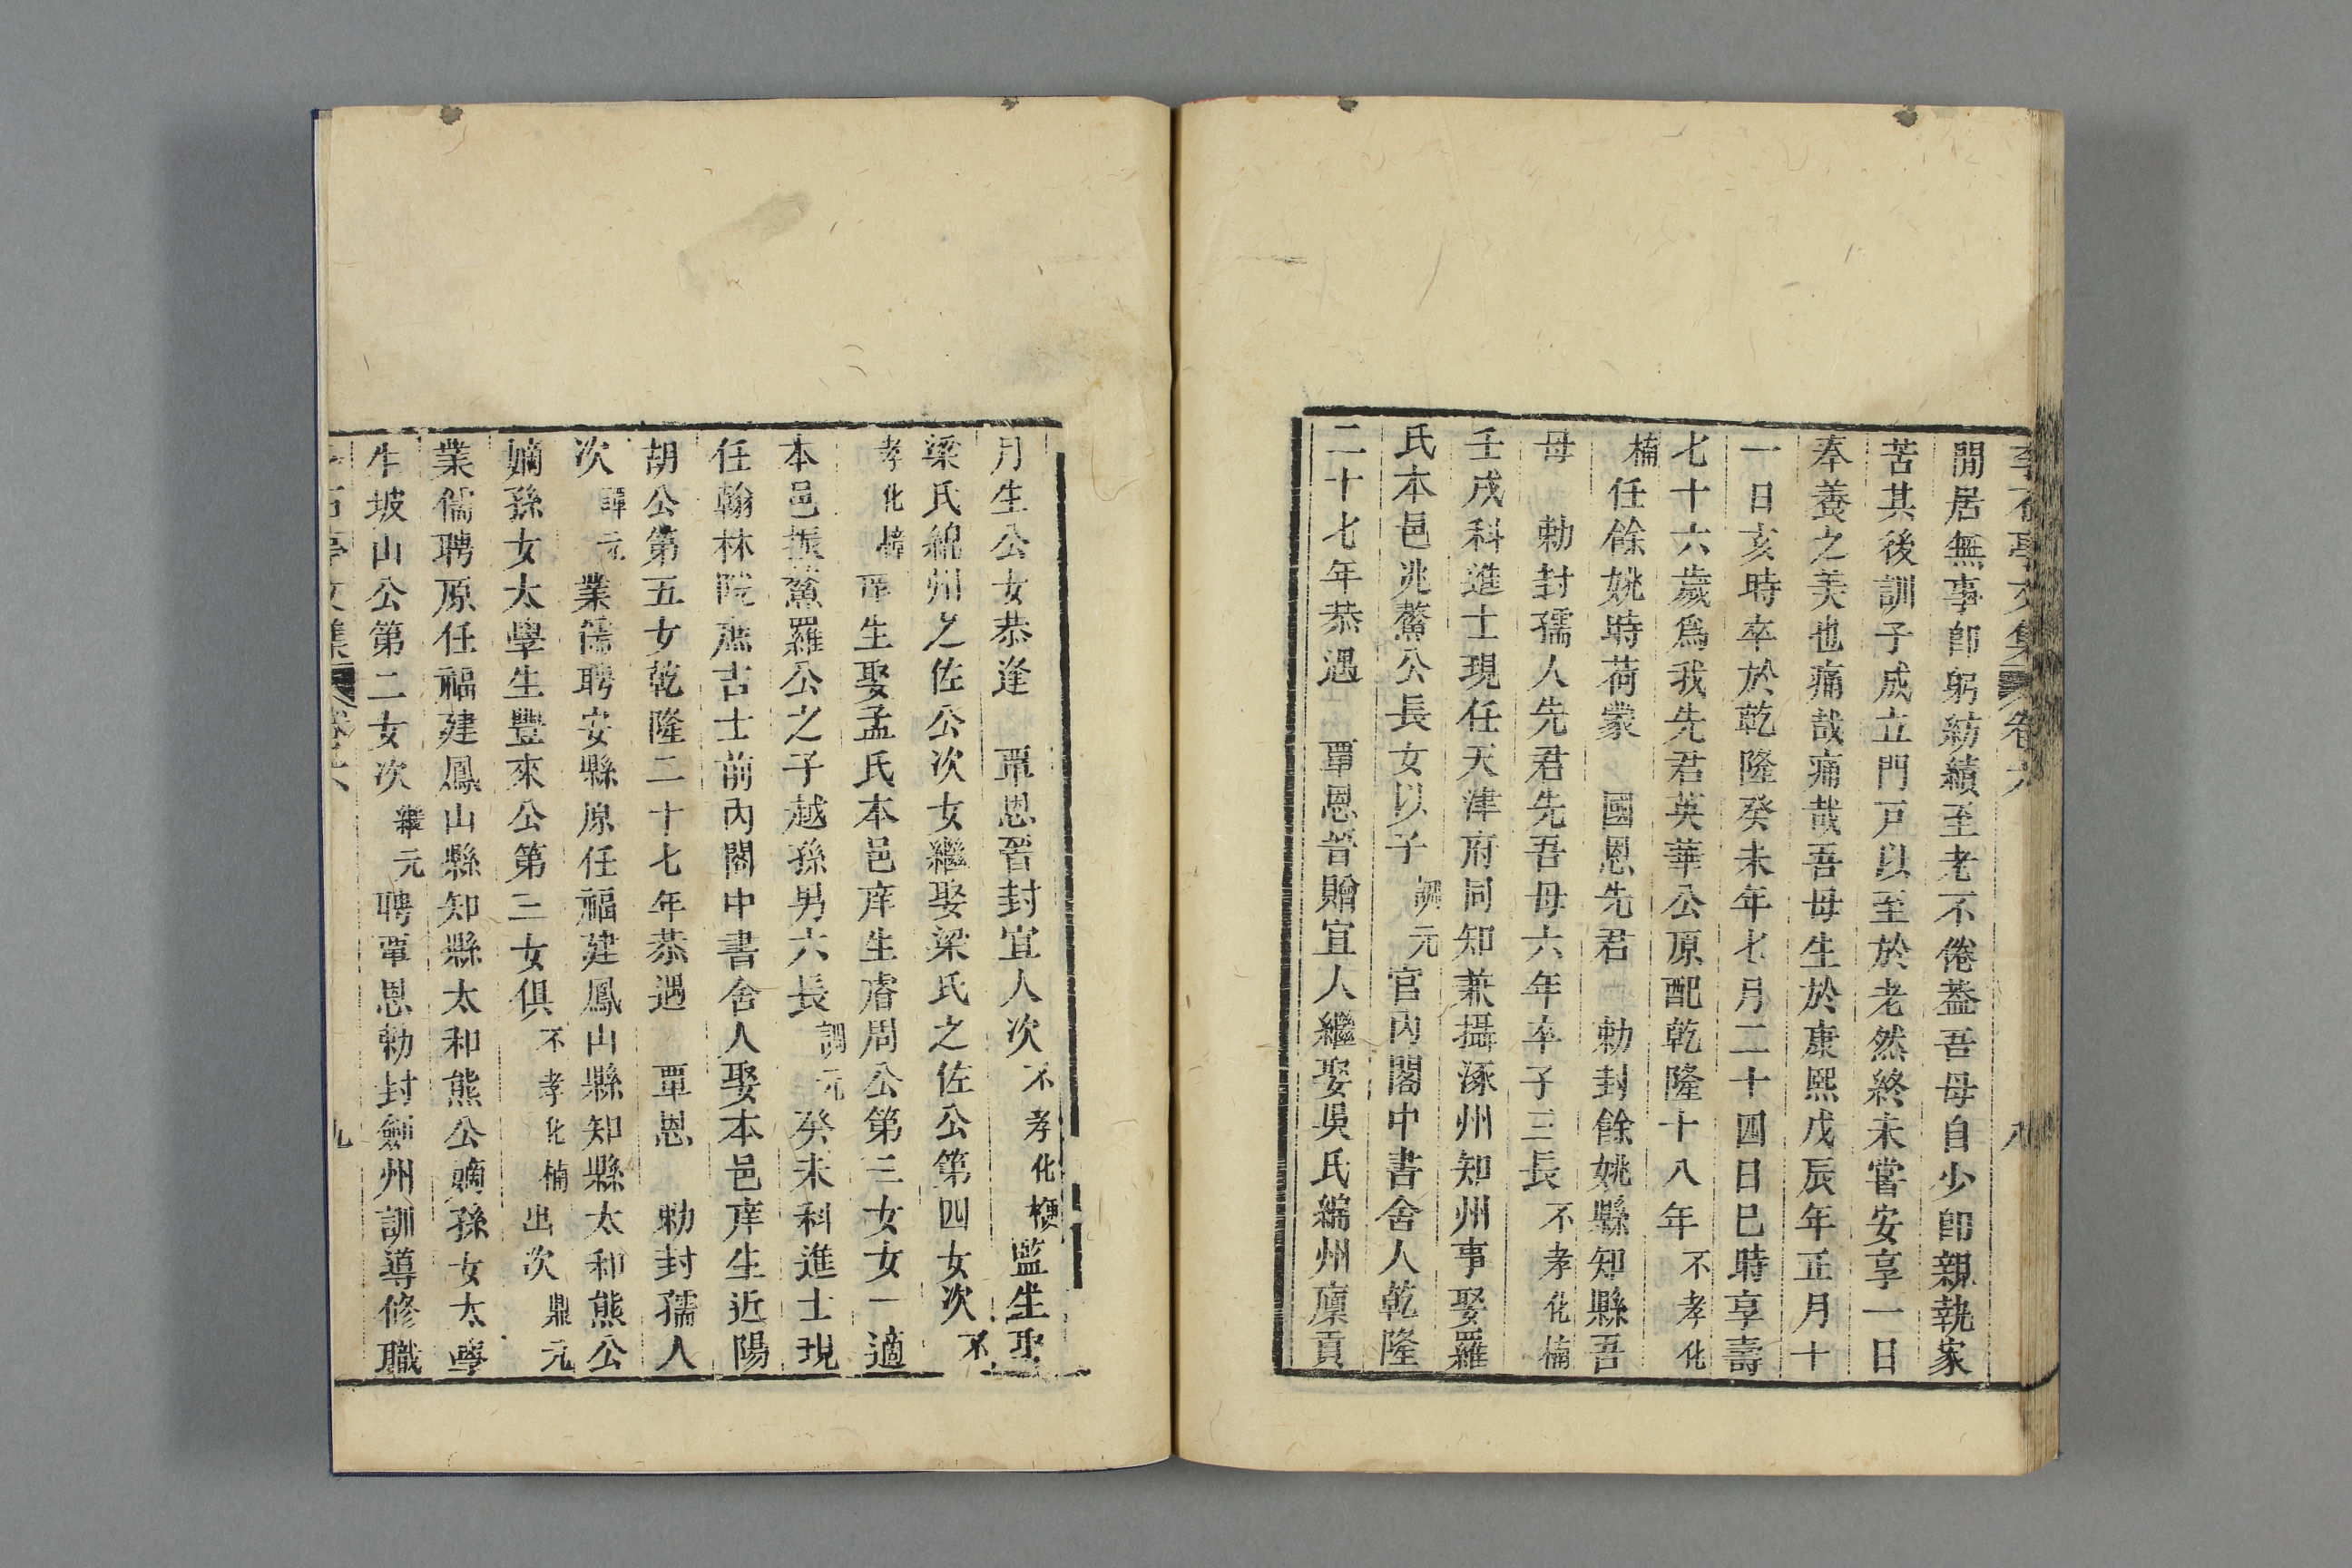 李石亭文集 卷六 八
閒居無事卽躬紡績至老不倦葢吾母自少卽親執家
苦其後訓子成立門戸以至於老然終未嘗安享一日
奉養之美也痛哉痛哉吾母生於康熙戊辰年正月十
一日亥時卒於乾隆癸未年七月二十四日巳時享壽
七十六歲爲我先君英華公原配乾隆十八年不孝化
楠任餘姚時荷蒙 國恩先君 勅封餘姚縣知縣吾
母 勅封孺人先君先吾母六年卒子三長不孝化楠
壬戌科進士現任天津府同知兼攝涿州知州事娶羅
氏本邑兆鰲公長女以子調元官內閣中書舍人乾隆
二十七年恭遇 覃恩晉贈宜人繼娶吳氏綿州廩貢
月生公女恭逢 覃恩晉封宜人次不孝化楩監生娶
梁氏綿州之佐公次女繼娶梁氏之佐公第四女次不
孝化樟庠生娶孟氏本邑庠生睿周公第三女女一適
本邑振鷟羅公之子越孫男六長調元癸未科進士現
任翰林院庶吉士前內閣中書舍人娶本邑庠生近陽
胡公第五女乾隆二十七年恭遇 覃恩 勅封孺人
次譚元業儒聘安縣原任福建鳳山縣知縣太和熊公
嫡孫女太學生豐來公第三女俱不孝化楠出次鼎元
業儒聘原任福建鳳山縣知縣太和熊公嫡孫女太學
生坡山公第二女次 元聘覃恩勅封劍州訓導修職
石亭文集 卷六 九